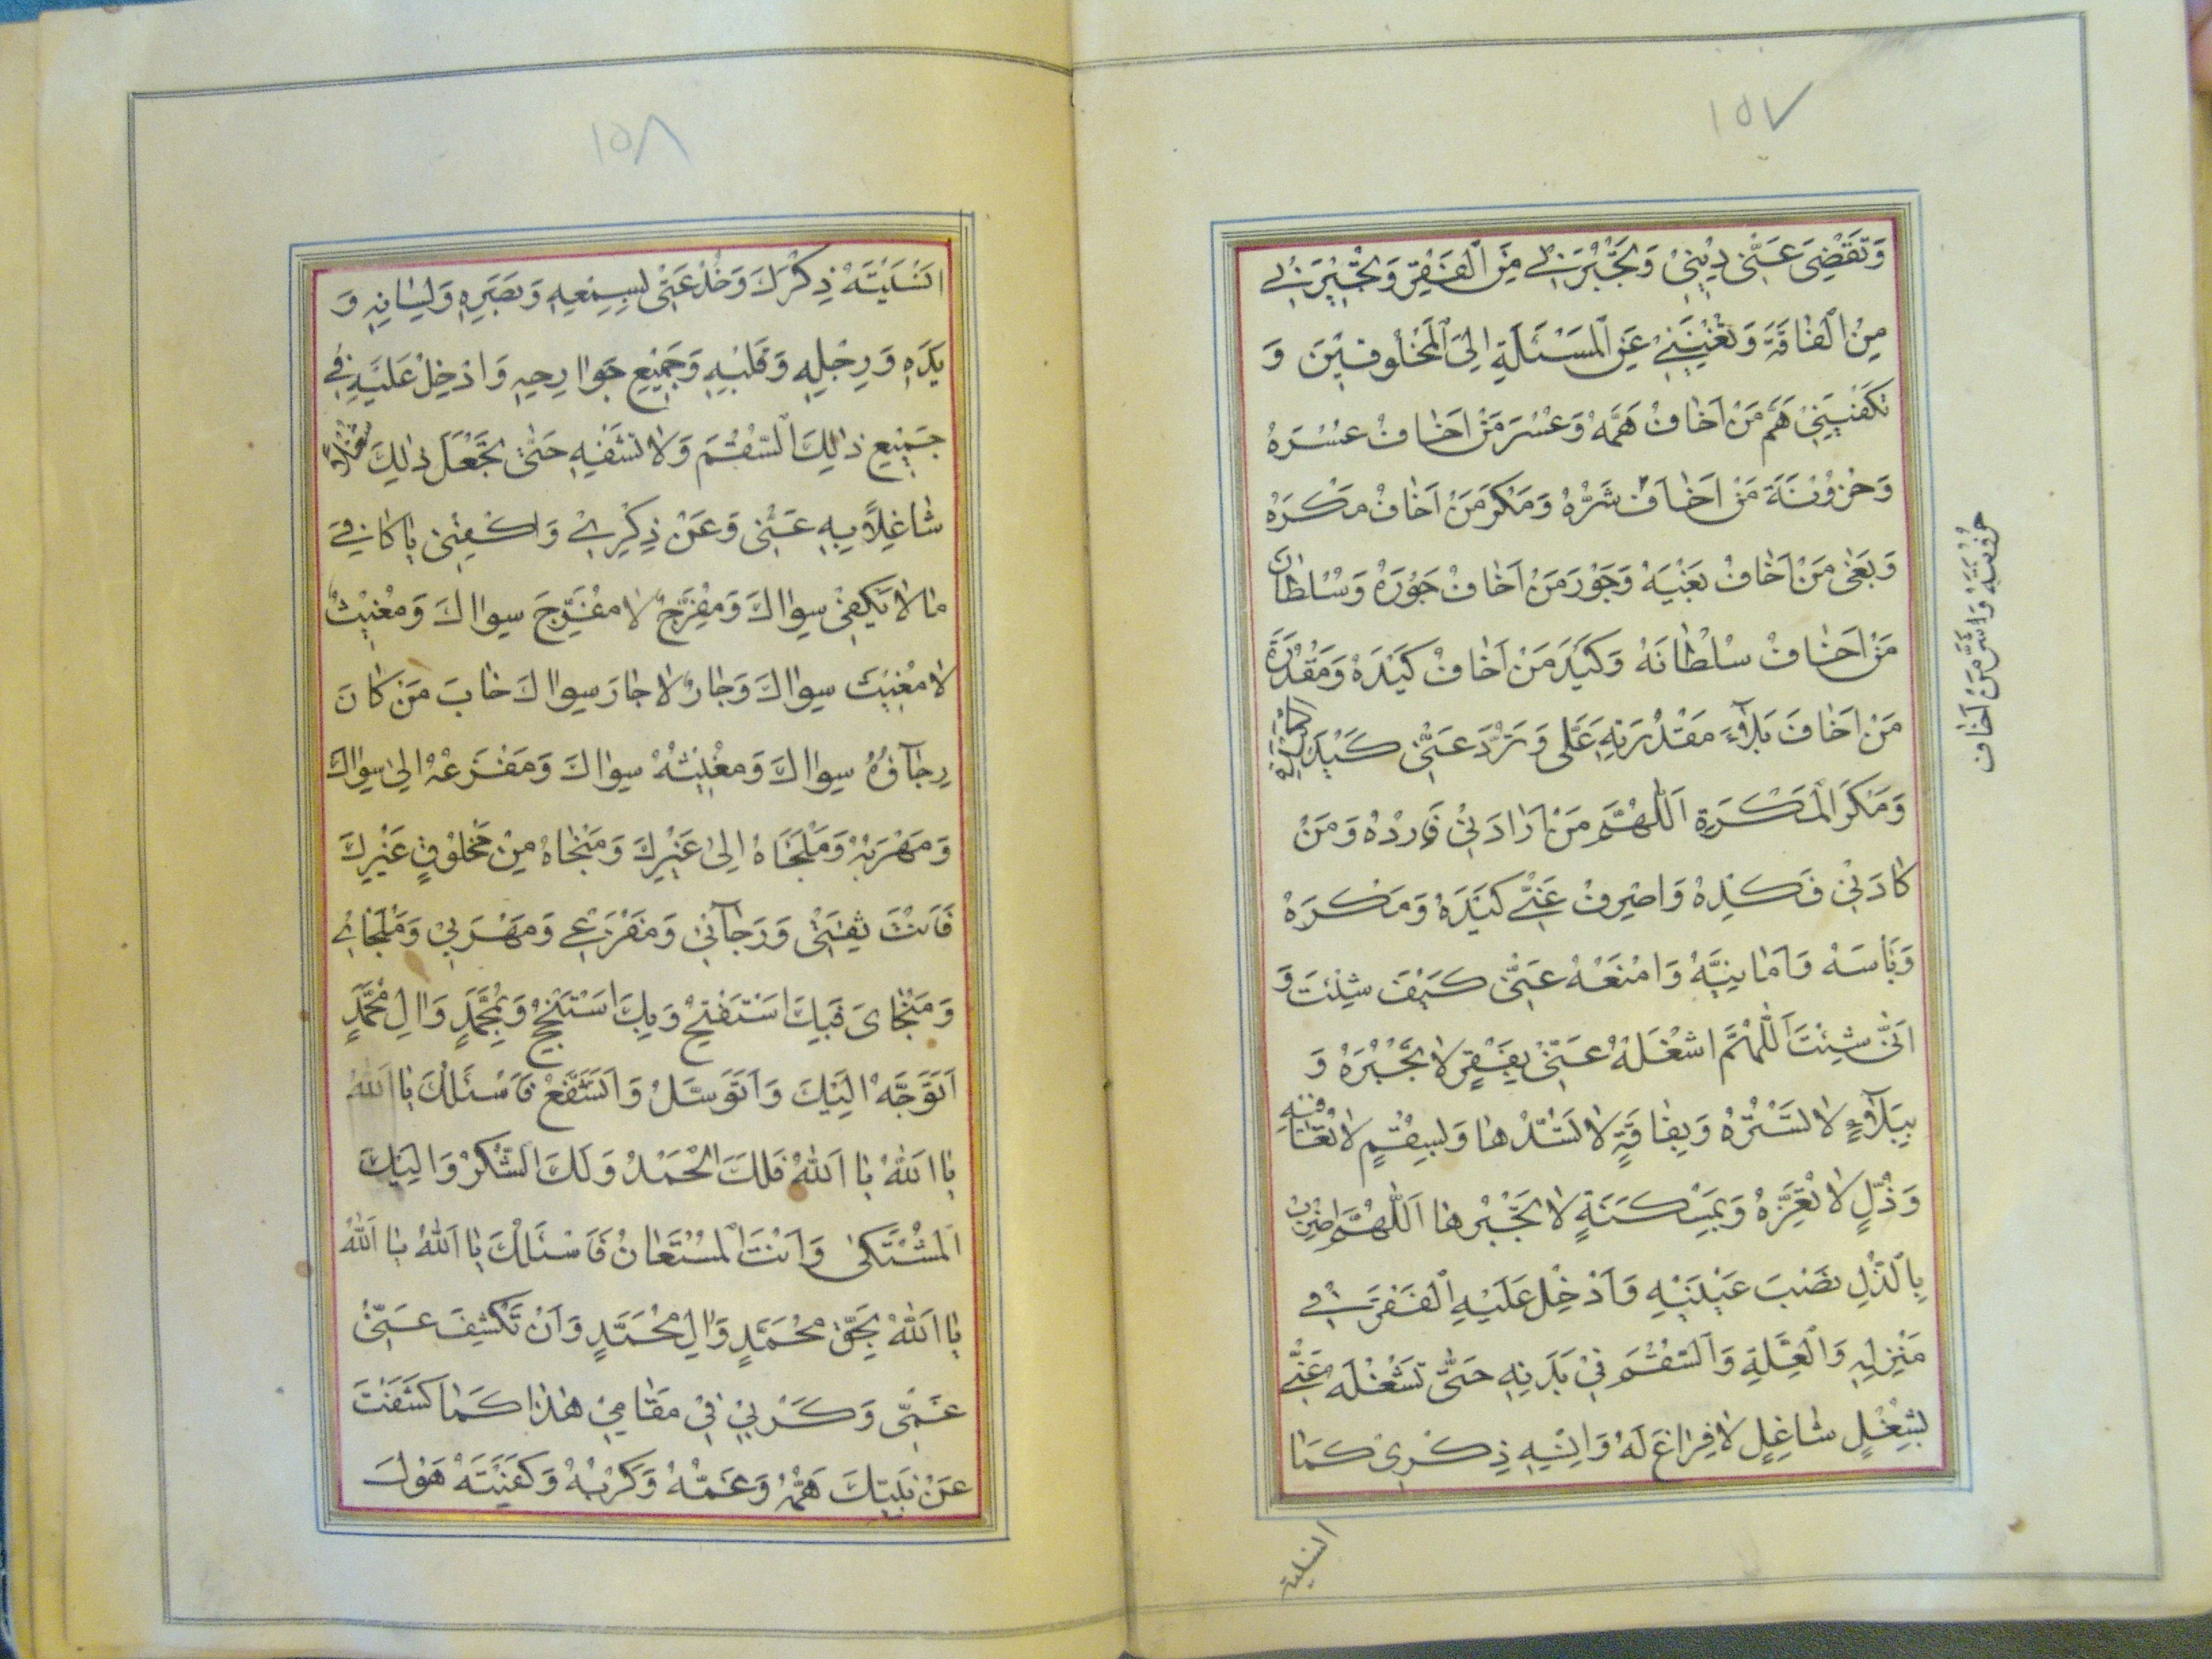 ١٥٧
وَتَقْضِىَ عَنّى دِيْنِىْ وَتَجْبُرَنِىْ مِنَ الْفَقْرِ وَتُجْبِرَنِىْ
مِنَ الْفاقَةِ وَتُغْنِيَنِىْ عَنِ الْمَسْئَلَةِ اِلَى الْمَخْلُوقيْنَ وَ
تَكْفِيَنِىْ هَمَّ مَنْ اَخافُ هَمَّهُ وَعُسْرَ مَنْ اَخافُ عُسْرَهُ
وَحُزُوْنَةَ مَنْ اَخافُ شَرُّهُ وَمَكْرَ مَنْ اَخافُ مَكْرَهُ
وَبَغْىَ مَنْ اَخافُ بَغْيَهُ وَجَوْرَ مَنْ اَخافُ جَوْرَهُ وَسُلْطانَ
مَنْ اَخافُ سُلْطانَهُ وَكَيْدَ مَنْ اَخافُ كَيْدَهُ وَمَقْدُرَةَ
مَنْ اَخافَ بَلآءَ مَقْدُرَتِهِ عَلَى وَتَرُدَّ عَنّى كَيْدَ الْكَيَدَةِ
وَمَكْرَ الْمَكَرَةِ اَللّهُمَّ مَنْ اَرادَنِىْ فَاَرِدْهُ وَمَنْ
كادَنِىْ فَكِدْهُ وَاصْرِفْ عَنِّىْ كَيْدَهُ وَمَكْرَهُ
وَبَأْسَهُ وَاَمانِيَّهُ وَامْنَعْهُ عَنّى كَيْفَ شِئْتَ وَ
اَنّى شِئْتَ اَللّهُمَّ اشْغَلْهُ عَنّىْ بِفَقْرٍ لا تَجْبُرُهُ وَ
بِبَلآءٍ لا تَسْتُرُهُ وَبِفاقَةٍ لا تَسُدُّها وَبِسُقْمٍ لا تُعافيهِ
وَذُلٍّ لا تُعِزُّهُ وَبِمَسْكَنَةٍ لا تَجْبُرُها اَللّهُمَّ اضْرِبْ
بِالذُّلِ نَصْبَ عَيْنَيْهِ وَاَدْخِلْ عَلَيْهِ الْفَقْرَ فِىْ
مَنْزِلِهِ وَالْعِلَّةِ وَالسُّقْمَ فِىْ بَدَنِهِ حَتّى تَشْغَلَهُ عَنِّىْ
بِشُغْلٍ شاغِلٍ لا فِراغَ لَهُ وَاَنْسِهِ ذِكْرِىْ كَما
حُزُونَتَهُ وَشَرَّ مَنْ اَخافُ
انسيته
١٥٨
اَنْسَيْتَهُ ذِكْرَكَ وَخُذْ عَنّى بِسِمْعِهِ وَبَصَرِهِ وَلِسانِهِ وَ
يَدِهِ وَرِجْلِهِ وَقَلْبِهِ وَجَمِيْعِ جَوارِحِهِ وَادْخِلْ عَلَيْهِ فِىْ
جَمِيْعِ ذالِكَ السُّقْمَ وَلا تَشْفِهِ حَتّى تَجْعَلَ ذالِكَ شُغْلاً
شاغِلاً بِهِ عَنّى وَعَنْ ذِكْرِىْ وَاكْفِنِىْ يا كافِىَ
مالا يَكْفِىْ سِواكَ وَمُفَرِّجٌ لا مُفَرِّجَ سِواكَ وَمُغيْثٌ
لا مُغيْثَ سِواكَ وَجارٌ لا جارَ سِواكَ خابَ مَنْ كانَ
رِجآؤُهُ سِواكَ وَمُغيْثُهُ سِواكَ وَمَفْزَعُهُ اِلى سِواكَ
وَمَهْرَبُهُ وَمَلْجَاهُ اِلى غَيْرِكَ وَمَنْجاهُ مِنْ مَخْلُوْقٍ غَيْرِكَ
فَاَنْتَ ثِقَتِىْ وَرَجآئِىْ وَمَفْزَعِىْ وَمَهْرَبِىْ وَمَلْجَائِىْ
وَمَنْجاىَ فَبِكَ اَسْتَفْتِحُ وَبِكَ اَسْتَنْجِحُ وَبِمُحَمَّدٍ وَالِ مُحَمَّدٍ
اَتَوَجَّهُ اِلَيْكَ وَاَتَوَسَّلُ وَاَتَشَفَّعُ فَاَسْئَلُكَ يا اَللهُ
يا اَللهُ يا اَللهُ فَلَكَ الْحَمْدُ وَلَكَ الشُّكْرُ وَاِلَيْكَ
الْمُشْتَكى وَاَنْتَ الْمُسْتَعانُ فَاَسْئَلُكَ يا اَللهُ يا اَللهُ
يا اَللهُ بِحَقِّ مُحَمَّدٍ وَالِ مُحَمَّدٍ وَاَنْ تَكْشِفَ عَنّىْ
غَمِّى وَكَرْبِىْ فِىْ مَقامِىْ هذا كَما كَشَفْتَ
عَنْ نَبِيِّكَ هَمَّهُ وَغَمَّهُ وَكَرْبَهُ وَكَفَيْتَهُ هَوْلَ